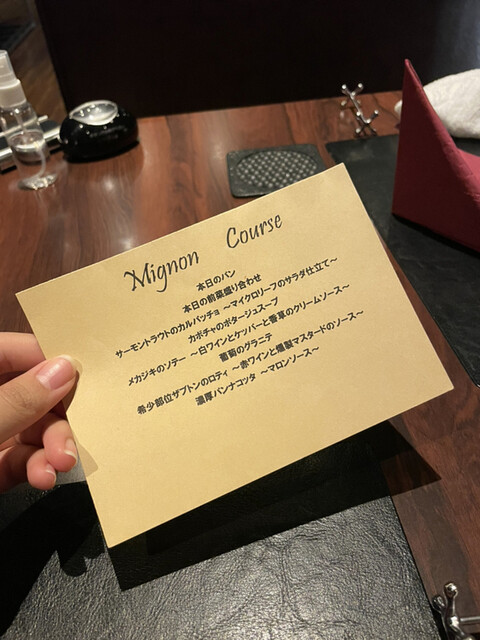 Mignon Course
本日のパン
本日の前菜盛り合わせ
サーモントラウトのカルパッチョ ～マイクロリーフのサラダ仕立て～
カボチャのポタージュスープ
メカジキのソテー ～白ワインとケッパーと香草のクリームソース～
葡萄のグラニテ
希少部位ザブトンのロティ ～赤ワインと燻製マスタードのソース～
濃厚パンナコッタ ～マロンソース～